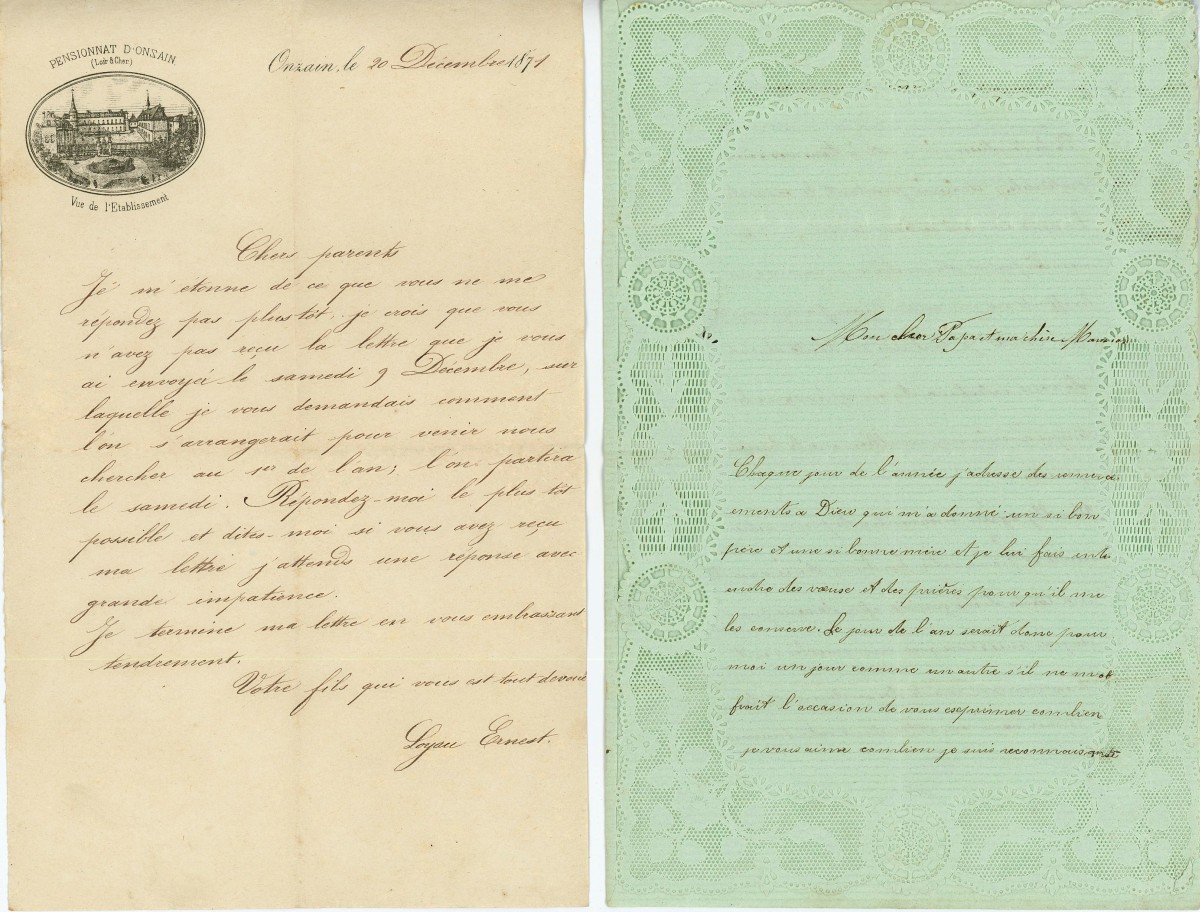 PENSIONNAT D'ONZAIN
(Loir & Cher)
Vue de l'Etablissement
Onzain, le 20 Décembre 1871
Chers parents
Je m'étonne de ce que vous ne me
répondez pas plus tôt, je crois que vous
n'avez pas reçu la lettre que je vous
ai envoyée le samedi 9 Décembre, sur
laquelle je vous demandais comment
l'on s'arrangerait pour venir nous
chercher au 1er de l'an; l'on partira
le samedi. Répondez-moi le plus tôt
possible et dites-moi si vous avez reçu
ma lettre j'attends une réponse avec
grande impatience.
Je termine ma lettre en vous embrassant
tendrement.
Votre fils qui vous est tout dévoué
Loyau Ernest.
Mon cher Papa et ma chère Maman
Chaque jour de l'année j'adresse des remerci
ements a Dieu qui m'a donné un si bon
père et une si bonne mère et je lui fais ent
endre des vœux et des prières pour qu'il me
les conserve. Le jour de l'an serait donc pour
moi un jour comme un autre s'il ne m'of
frait l'occasion de vous exprimer combien
je vous aime combien je suis reconnaissant